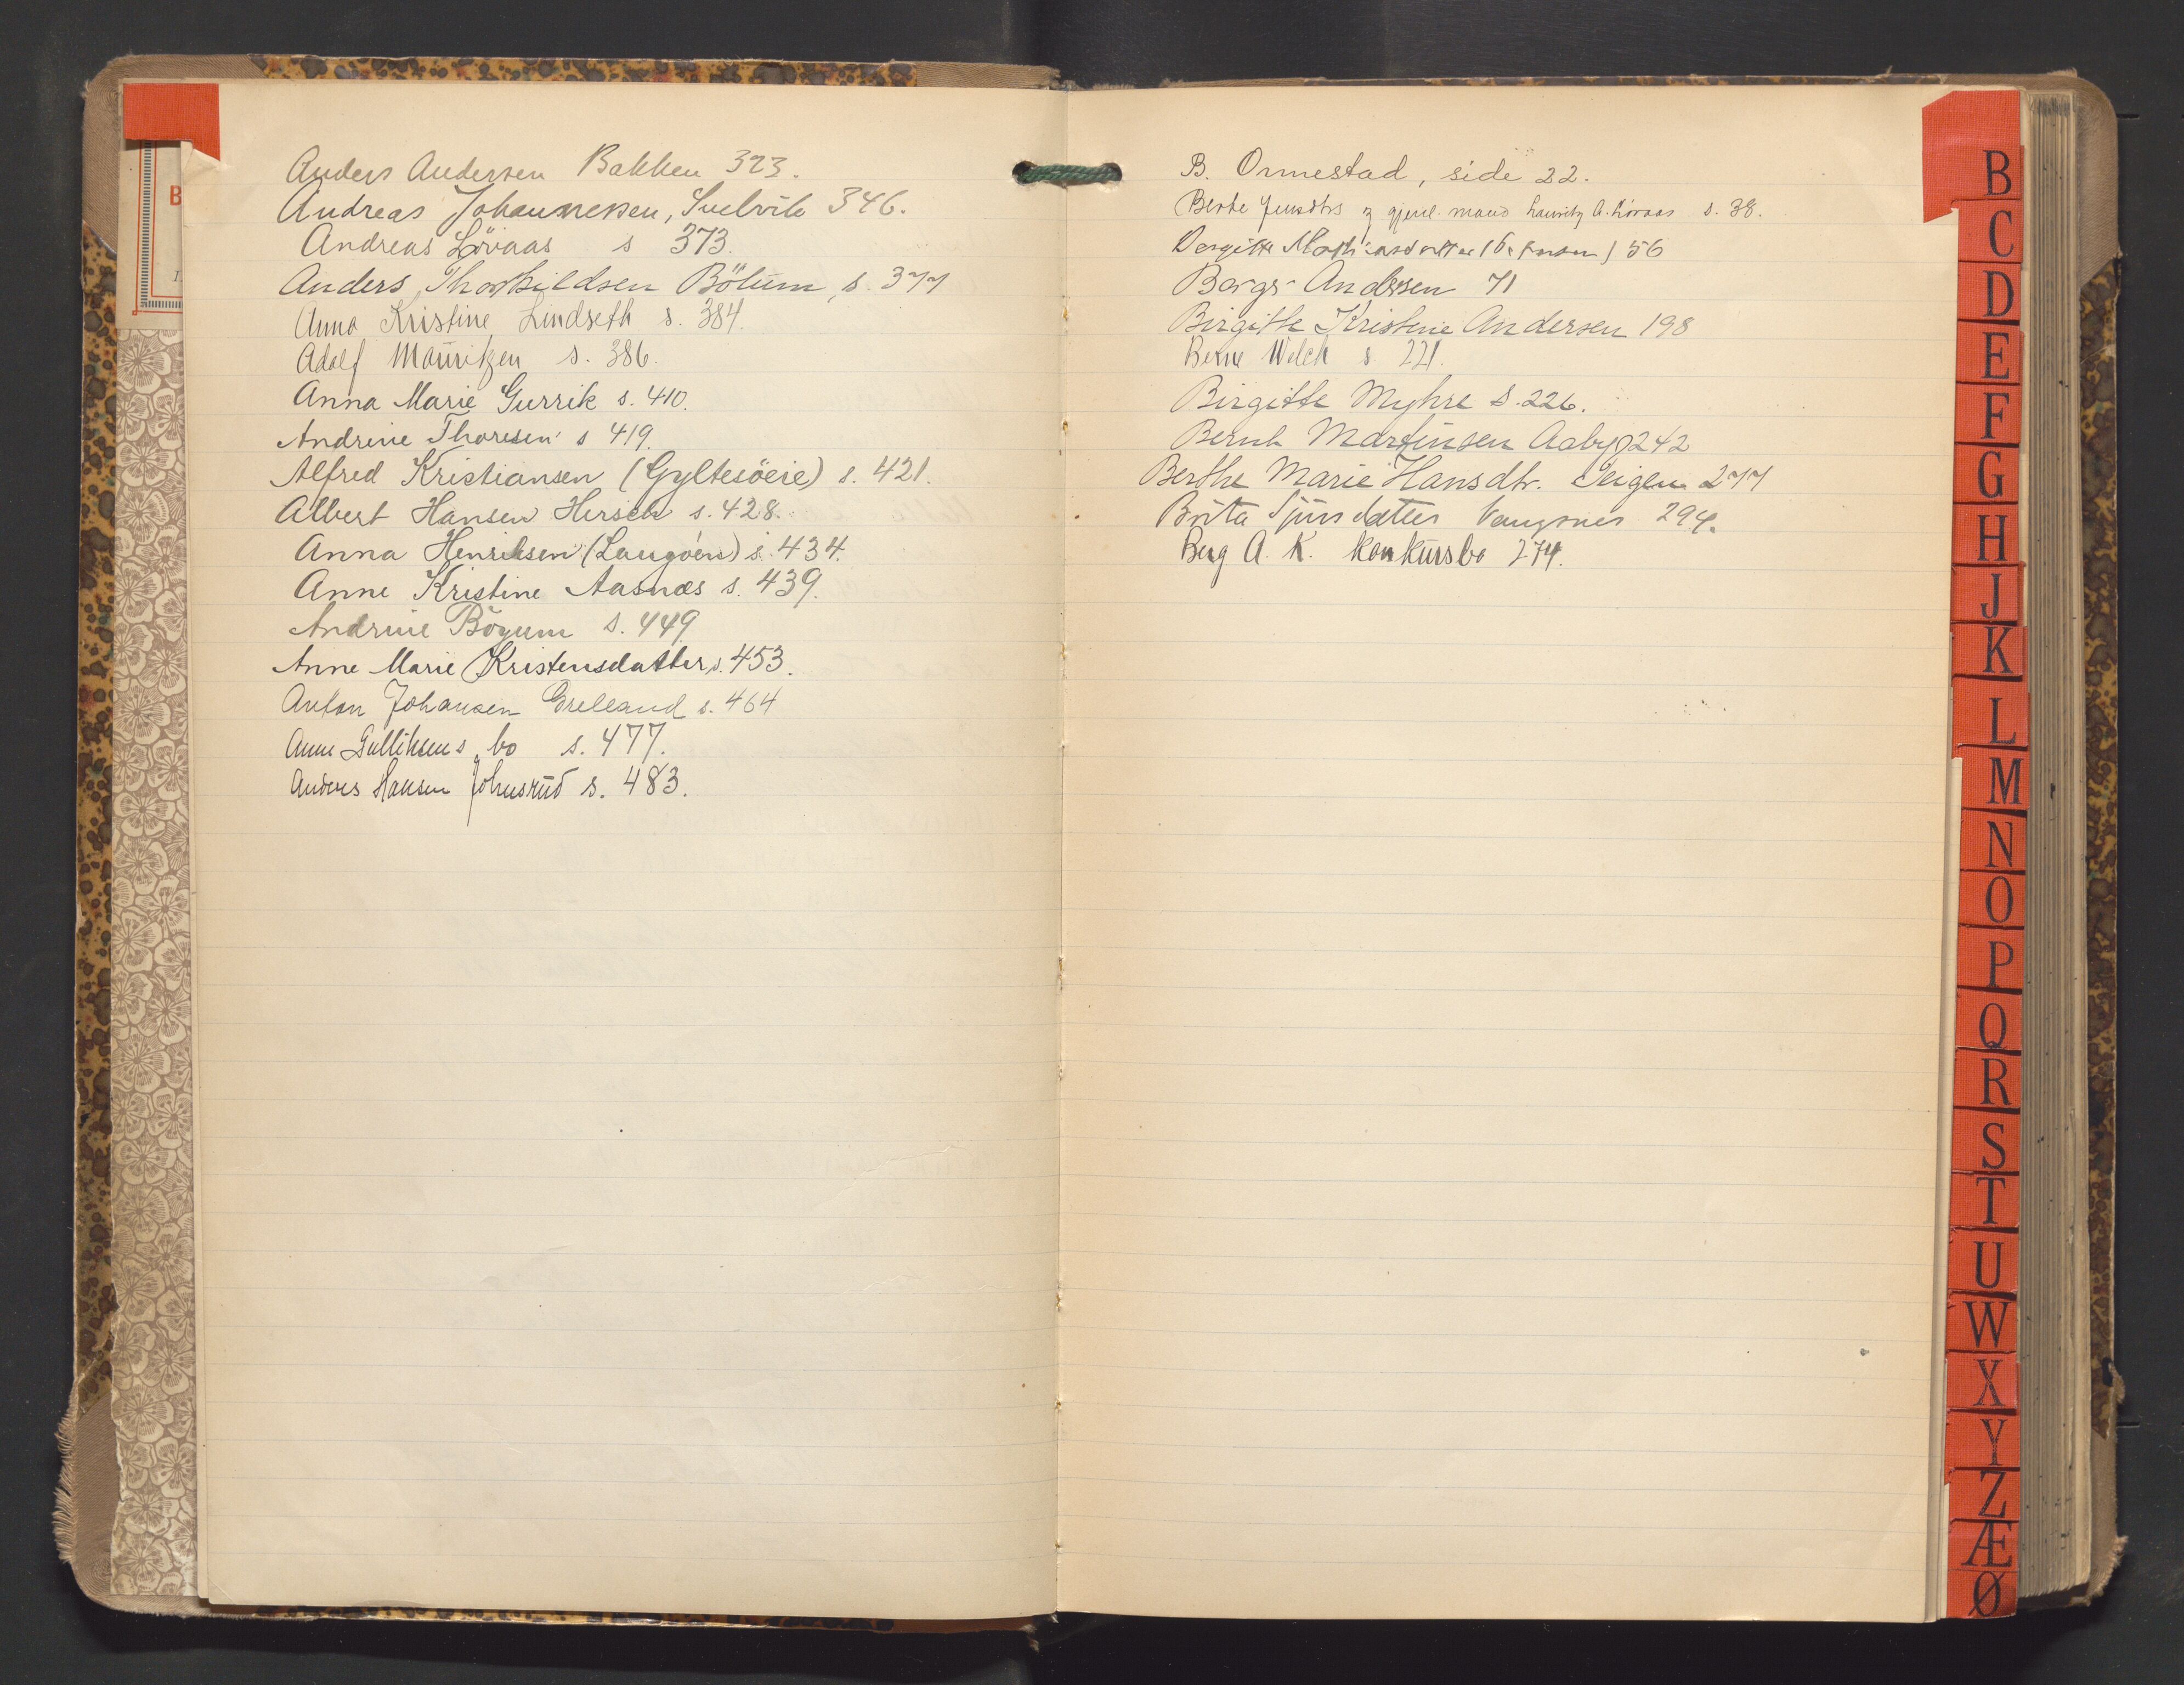 Anders Andersen Bakken 323.
Andreas Johannessen, Svelvik 346.
Andreas Lövaas s 373.
Anders Thorkildsen Bölum, s. 377
Anna Kristine Lindseth s. 384.
Adolf Mauritzen s. 386.
Anna Marie Gurrik s. 410.
Andrine Thoresen s 419.
Alfred Kristiansen (Gyltesöeie) s. 421.
Albert Hansen Hirsch s. 428.
Anna Henriksen (Langöen) s. 434.
Anne Kristine Aasnæs s. 439.
Andrine Bögum s. 449
Anne Marie Kristensdatter s. 453.
Anton Johansen Grelland s. 464
Anne Gulliksens bo s. 477.
Anders Hansen Johnsrud s. 483.
B. Ormestad, side 22.
Berte Jensdtrs g gjenl. mand Lauritz A. Lövaas s. 38.
56
Borger Andersen 71
Birgitte Kristine Andersen 198
Welch s. 221.
Birgitte Myhre s. 226.
Bernh Martinsen Aaby 242
Berthe Marie Hansdtr. Teigen 277
Brita Sjursdatter Vangsnes 294.
Berg A. K. konkursbo 274.
B
C
D
E
F
G
H
J
K
L
M
N
O
P
Q
R
S
T
U
W
X
Y
Z
Æ
Ø